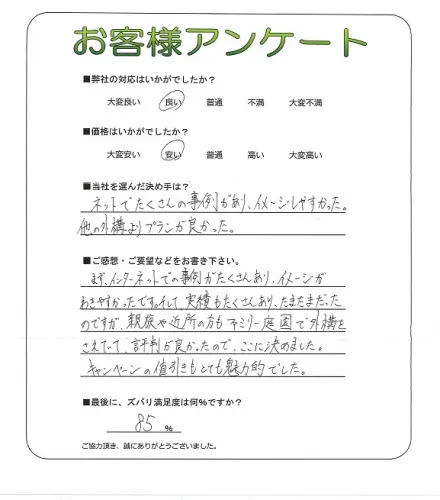 お客様アンケート
■弊社の対応はいかがでしたか？
大変良い 良い 普通 不満 大変不満
■価格はいかがでしたか？
大変安い 安い 普通 高い 大変高い
■当社を選んだ決め手は？
ネットでたくさんの事例があり、イメージしやすかった。
他の外構よりプランが良かった。
■ご感想・ご要望などをお書き下さい。
まず、インターネットでの事例がたくさんあり、イメージが
わきやすかったです。そして、実績もたくさんあり、たまたまだった
のですが、親族や近所の方もファミリー庭園で外構を
されていて、評判が良かったので、ここに決めました。
キャンペーンの値引きもとても魅力的でした。
■最後に、ズバリ満足度は何%ですか？
85 %
ご協力頂き、誠にありがとうございました。